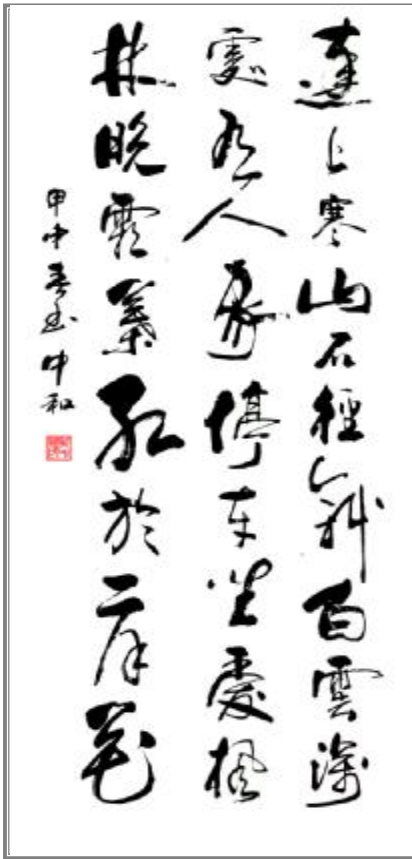 遠上寒山石徑斜白雲深
處有人家停車坐愛楓
林晚霜葉紅於二月花
甲申春書中和